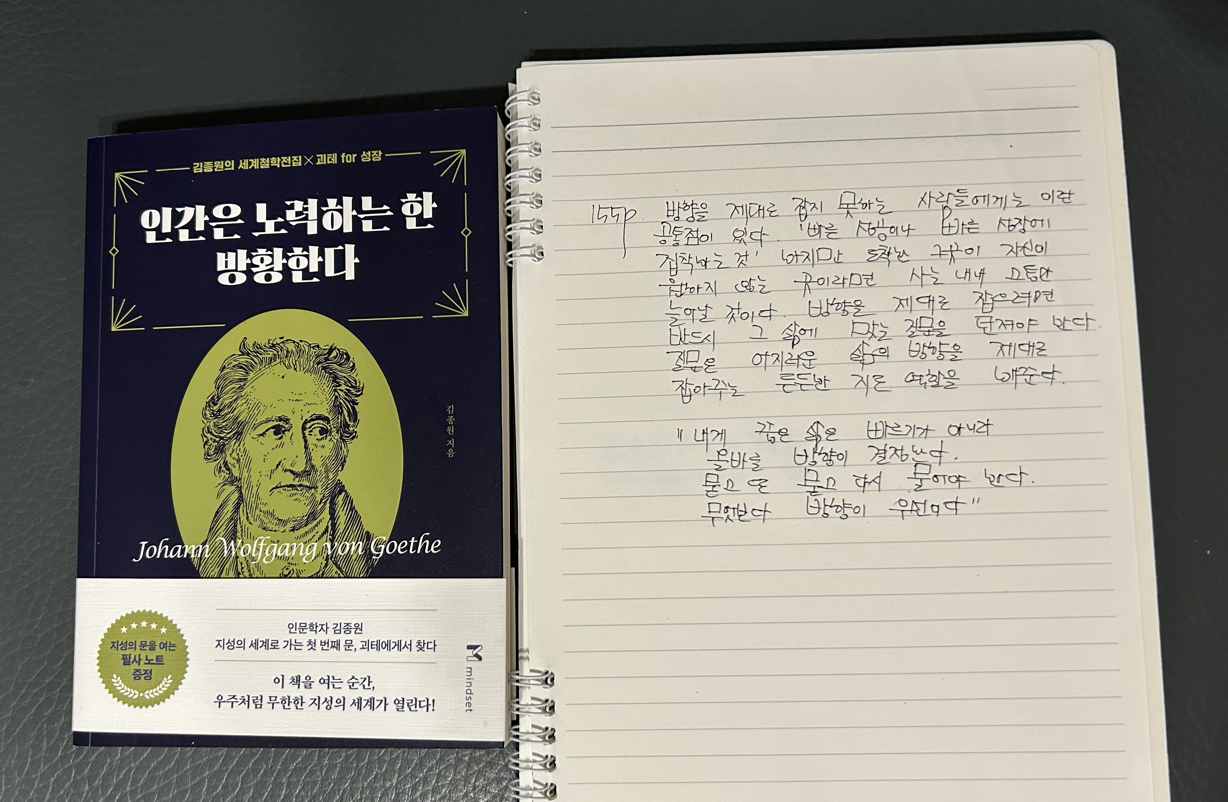 김종원의 세계철학전집×괴테 for 성장
인간은 노력하는 한
방황한다
김종원 지음
Johann Wolfgang von Goethe
지성의 문을 여는
필사 노트
증정
인문학자 김종원
지성의 세계로 가는 첫 번째 문, 괴테에게서 찾다
이 책을 여는 순간,
우주처럼 무한한 지성의 세계가 열린다!
mindset
155p 방향을 제대로 잡지 못하는 사람들에게는 이런
공통점이 있다. '빠른 성공이나 빠른 성장에
집착하는 것' 하지만 도착한 그곳이 자신이
원하지 않는 곳이라면 사는 내내 고통만
늘어날 것이다. 방향을 제대로 잡으려면
반드시 그 삶에 맞는 질문을 던져야 한다.
질문은 어지러운 삶의 방향을 제대로
잡아주는 든든한 지도 역할을 해준다.
"내게 값은 삶은 빠르기가 아니라
올바를 방향이 결정한다.
묻고 또 묻고 다시 물어야 한다.
무엇보다 방향이 우선이다"